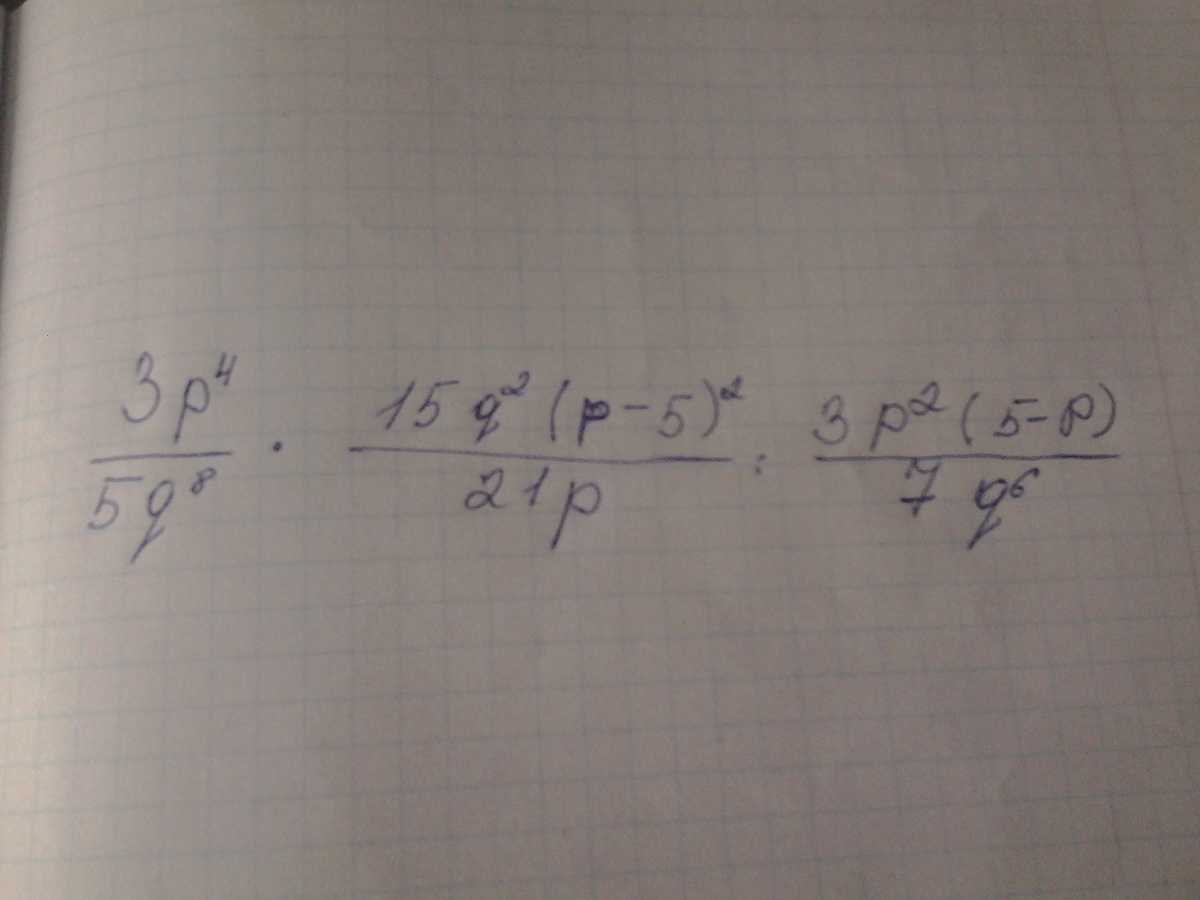 3p⁴/5q⁸ · 15q²(p-5)²/21p : 3p²(5-p)/7q⁶